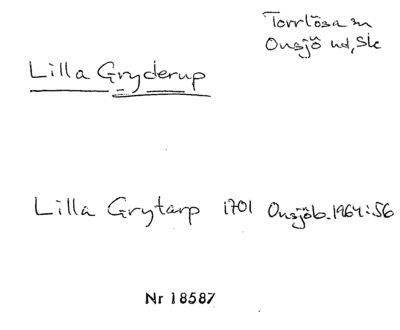 Torrlösa sn
Onsjö hd, Sk
Lilla Gryderup
Lilla Grytarp 1701 Onsjöb. 1964:56
Nr 18587